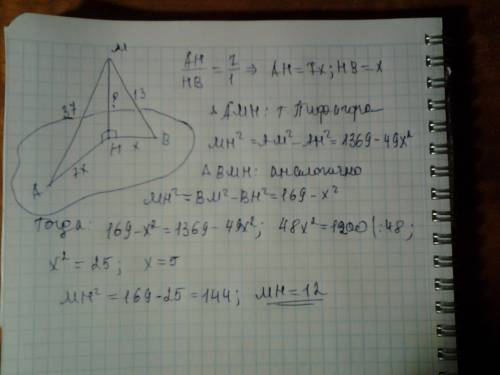 M
37
13
?
H
7x
x
B
A
AH/HB = 7/1 ⇒ AH = 7x; HB = x
Δ AMH: т. Пифагора
MH² = AM² - AH² = 1369 - 49x²
Δ BMH: аналогично
MH² = BM² - BH² = 169 - x²
Тогда: 169 - x² = 1369 - 49x²; 48x² = 1200 |:48;
x² = 25; x = 5
MH² = 169 - 25 = 144; MH = 12